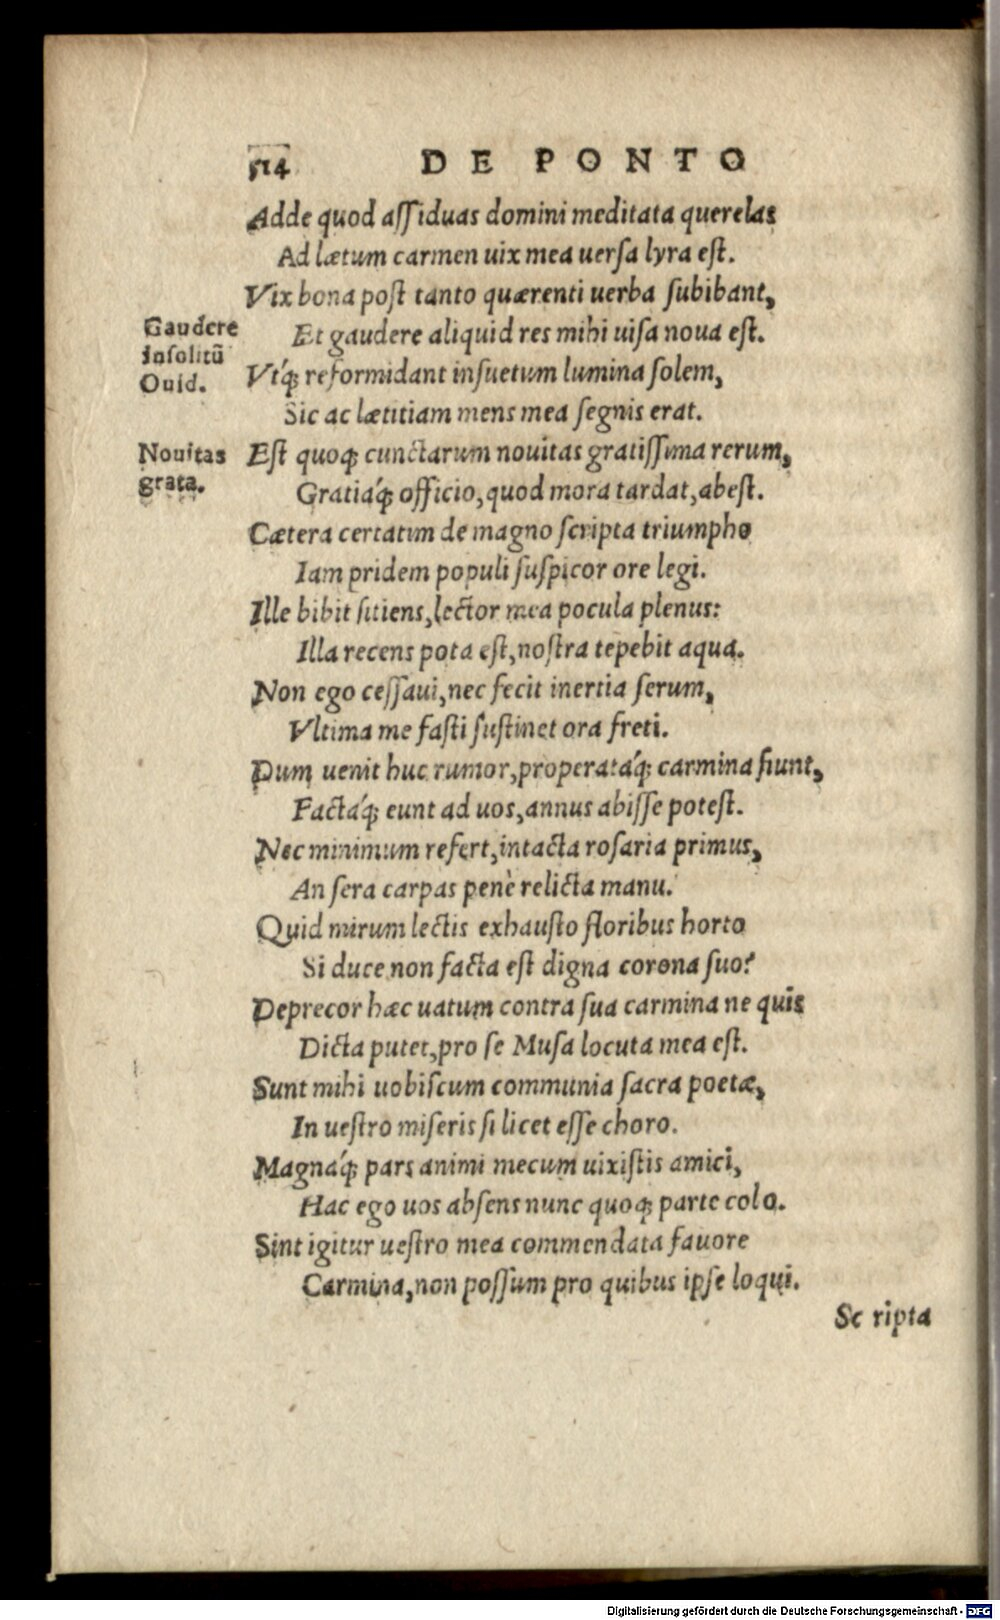 514 DE PONTO
Adde quod aſſiduas domini meditata querelas
Ad lætum carmen uix mea uerſa lyra eſt.
Vix bona poſt tanto quærenti uerba ſubibant,
Et gaudere aliquid res mihi uiſa noua eſt.
Gaudere
inſolitũ
Ouid.
Vtq́; reformidant inſuetum lumina ſolem,
Sic ac lætitiam mens mea ſegnis erat.
Nouitas
grata.
Eſt quoq; cunctarum nouitas gratiſſima rerum,
Gratiaq́; officio, quod mora tardat, abeſt.
Cætera certatim de magno ſcripta triumpho
Iam pridem populi ſuſpicor ore legi.
Ille bibit ſitiens, lector mea pocula plenus:
Illa recens pota eſt, noſtra tepebit aqua.
Non ego ceſſaui, nec fecit inertia ſerum,
Vltima me faſti ſuſtinet ora freti.
Dum uenit huc rumor, properataq́; carmina fiunt,
Factaq́; eunt ad uos, annus abiſſe poteſt.
Nec minimum refert, intacta roſaria primus,
An ſera carpas penè relicta manu.
Quid mirum lectis exhauſto floribus horto
Si duce non facta eſt digna corona ſuo?
Deprecor hæc uatum contra ſua carmina ne quis
Dicta putet, pro ſe Muſa locuta mea eſt.
Sunt mihi uobiſcum communia ſacra poetæ,
In ueſtro miſeris ſi licet eſſe choro.
Magnaq́; pars animi mecum uixiſtis amici,
Hac ego uos abſens nunc quoq; parte colo.
Sint igitur ueſtro mea commendata fauore
Carmina, non poſſum pro quibus ipſe loqui.
Sc ripta
Digitalisierung gefördert durch die Deutsche Forschungsgemeinschaft - DFG